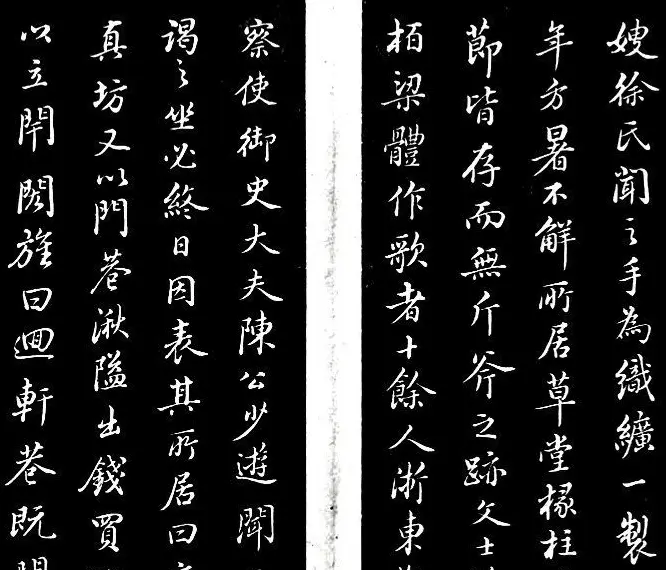 嫂徐氏聞之手為織纊一製
年方暑不解所居草堂椽柱
節皆存而無斤斧之跡文士
栢梁體作歌者十餘人浙東
察使御史大夫陳公少遊聞
謁之坐必終日因表其所居曰
真坊又以門巷湫隘出錢買
以立閈閎旌曰迴軒巷既